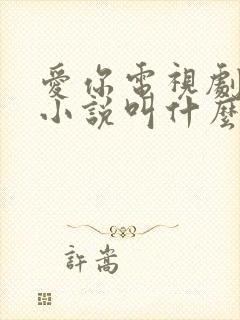 愛你電視劇
小說叫什麼
許嵩